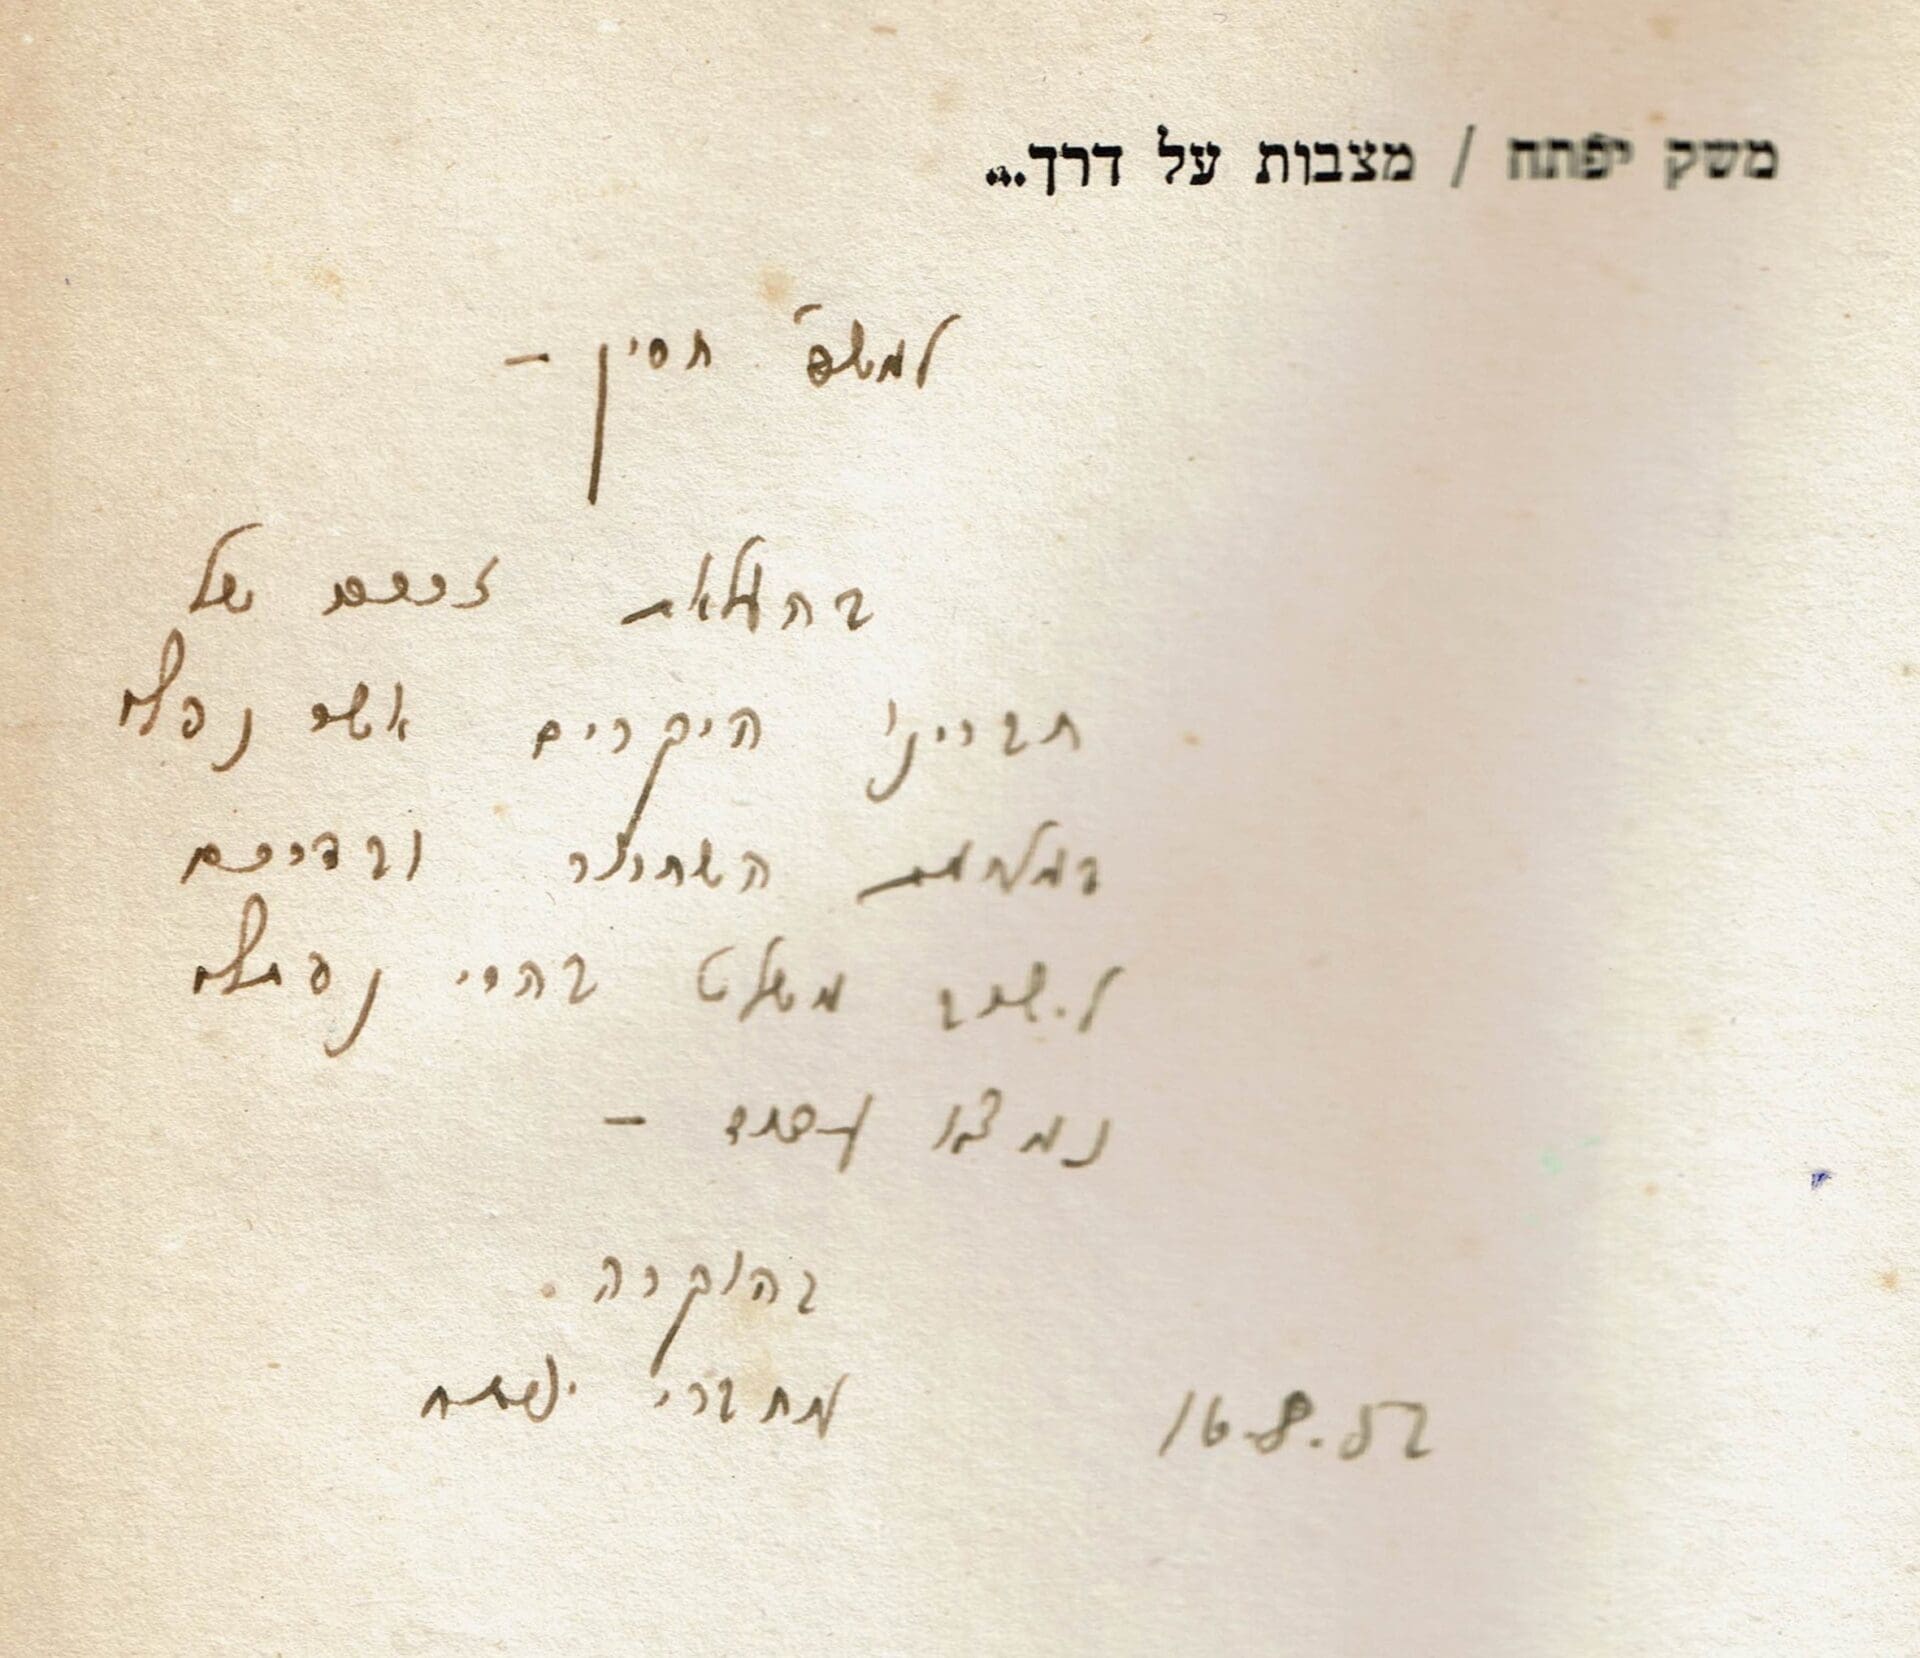 משק יפתח / מצבות על דרך...
למשפ' חסין –
בהעלאת זכרם של
חברינו היקרים אשר נפלו
במלחמת השחרור ובדרכם
לישוב משלט בהרי נפתלי
נמצא עדוד –
בהוקרה
מחברי יפתח
16.8.52